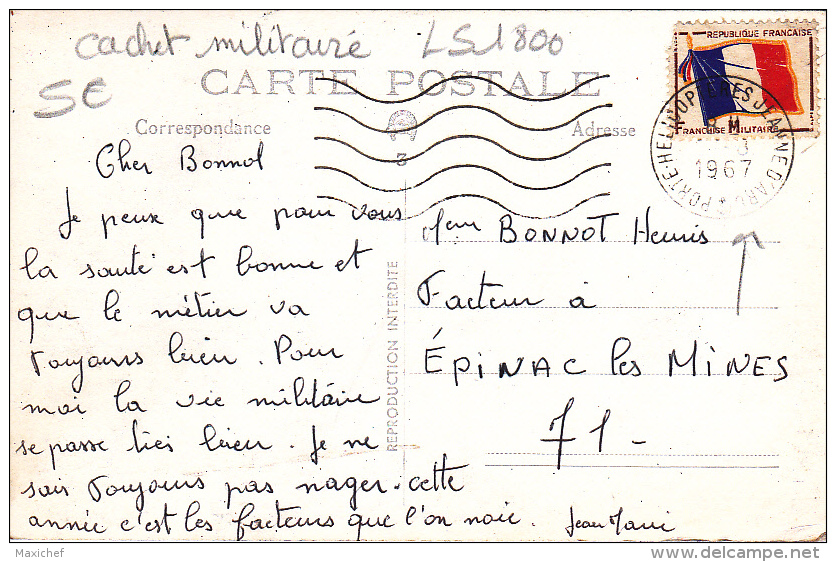 cachet militaire LS1800
SC
CARTE POSTALE
Correspondance
Adresse
REPUBLIQUE FRANÇAISE
FRANCHISE MILITAIRE
PORTE-HELICOPTERES JEANNE D'ARC
1967
Cher Bonnot
Je pense que pour vous
la santé est bonne et
que le métier va
toujours bien. Pour
moi la vie militaire
se passe très bien. Je ne
sais toujours pas nager. cette
année c'est les facteurs que l'on noie. Jean Marie
REPRODUCTION INTERDITE
BONNOT Henris
Facteur à
ÉPINAC les MINES
71-
Maxichef
www.delcampe.net